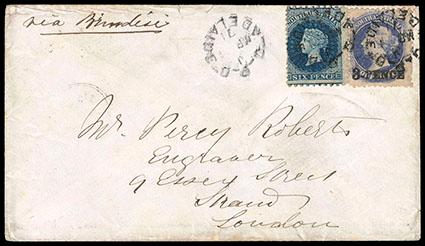 via Brindisi
ADELAIDE
SIX PENCE
3-PENCE
Mr. Percy Roberts
Engraver
9 Essex Street
Strand
London